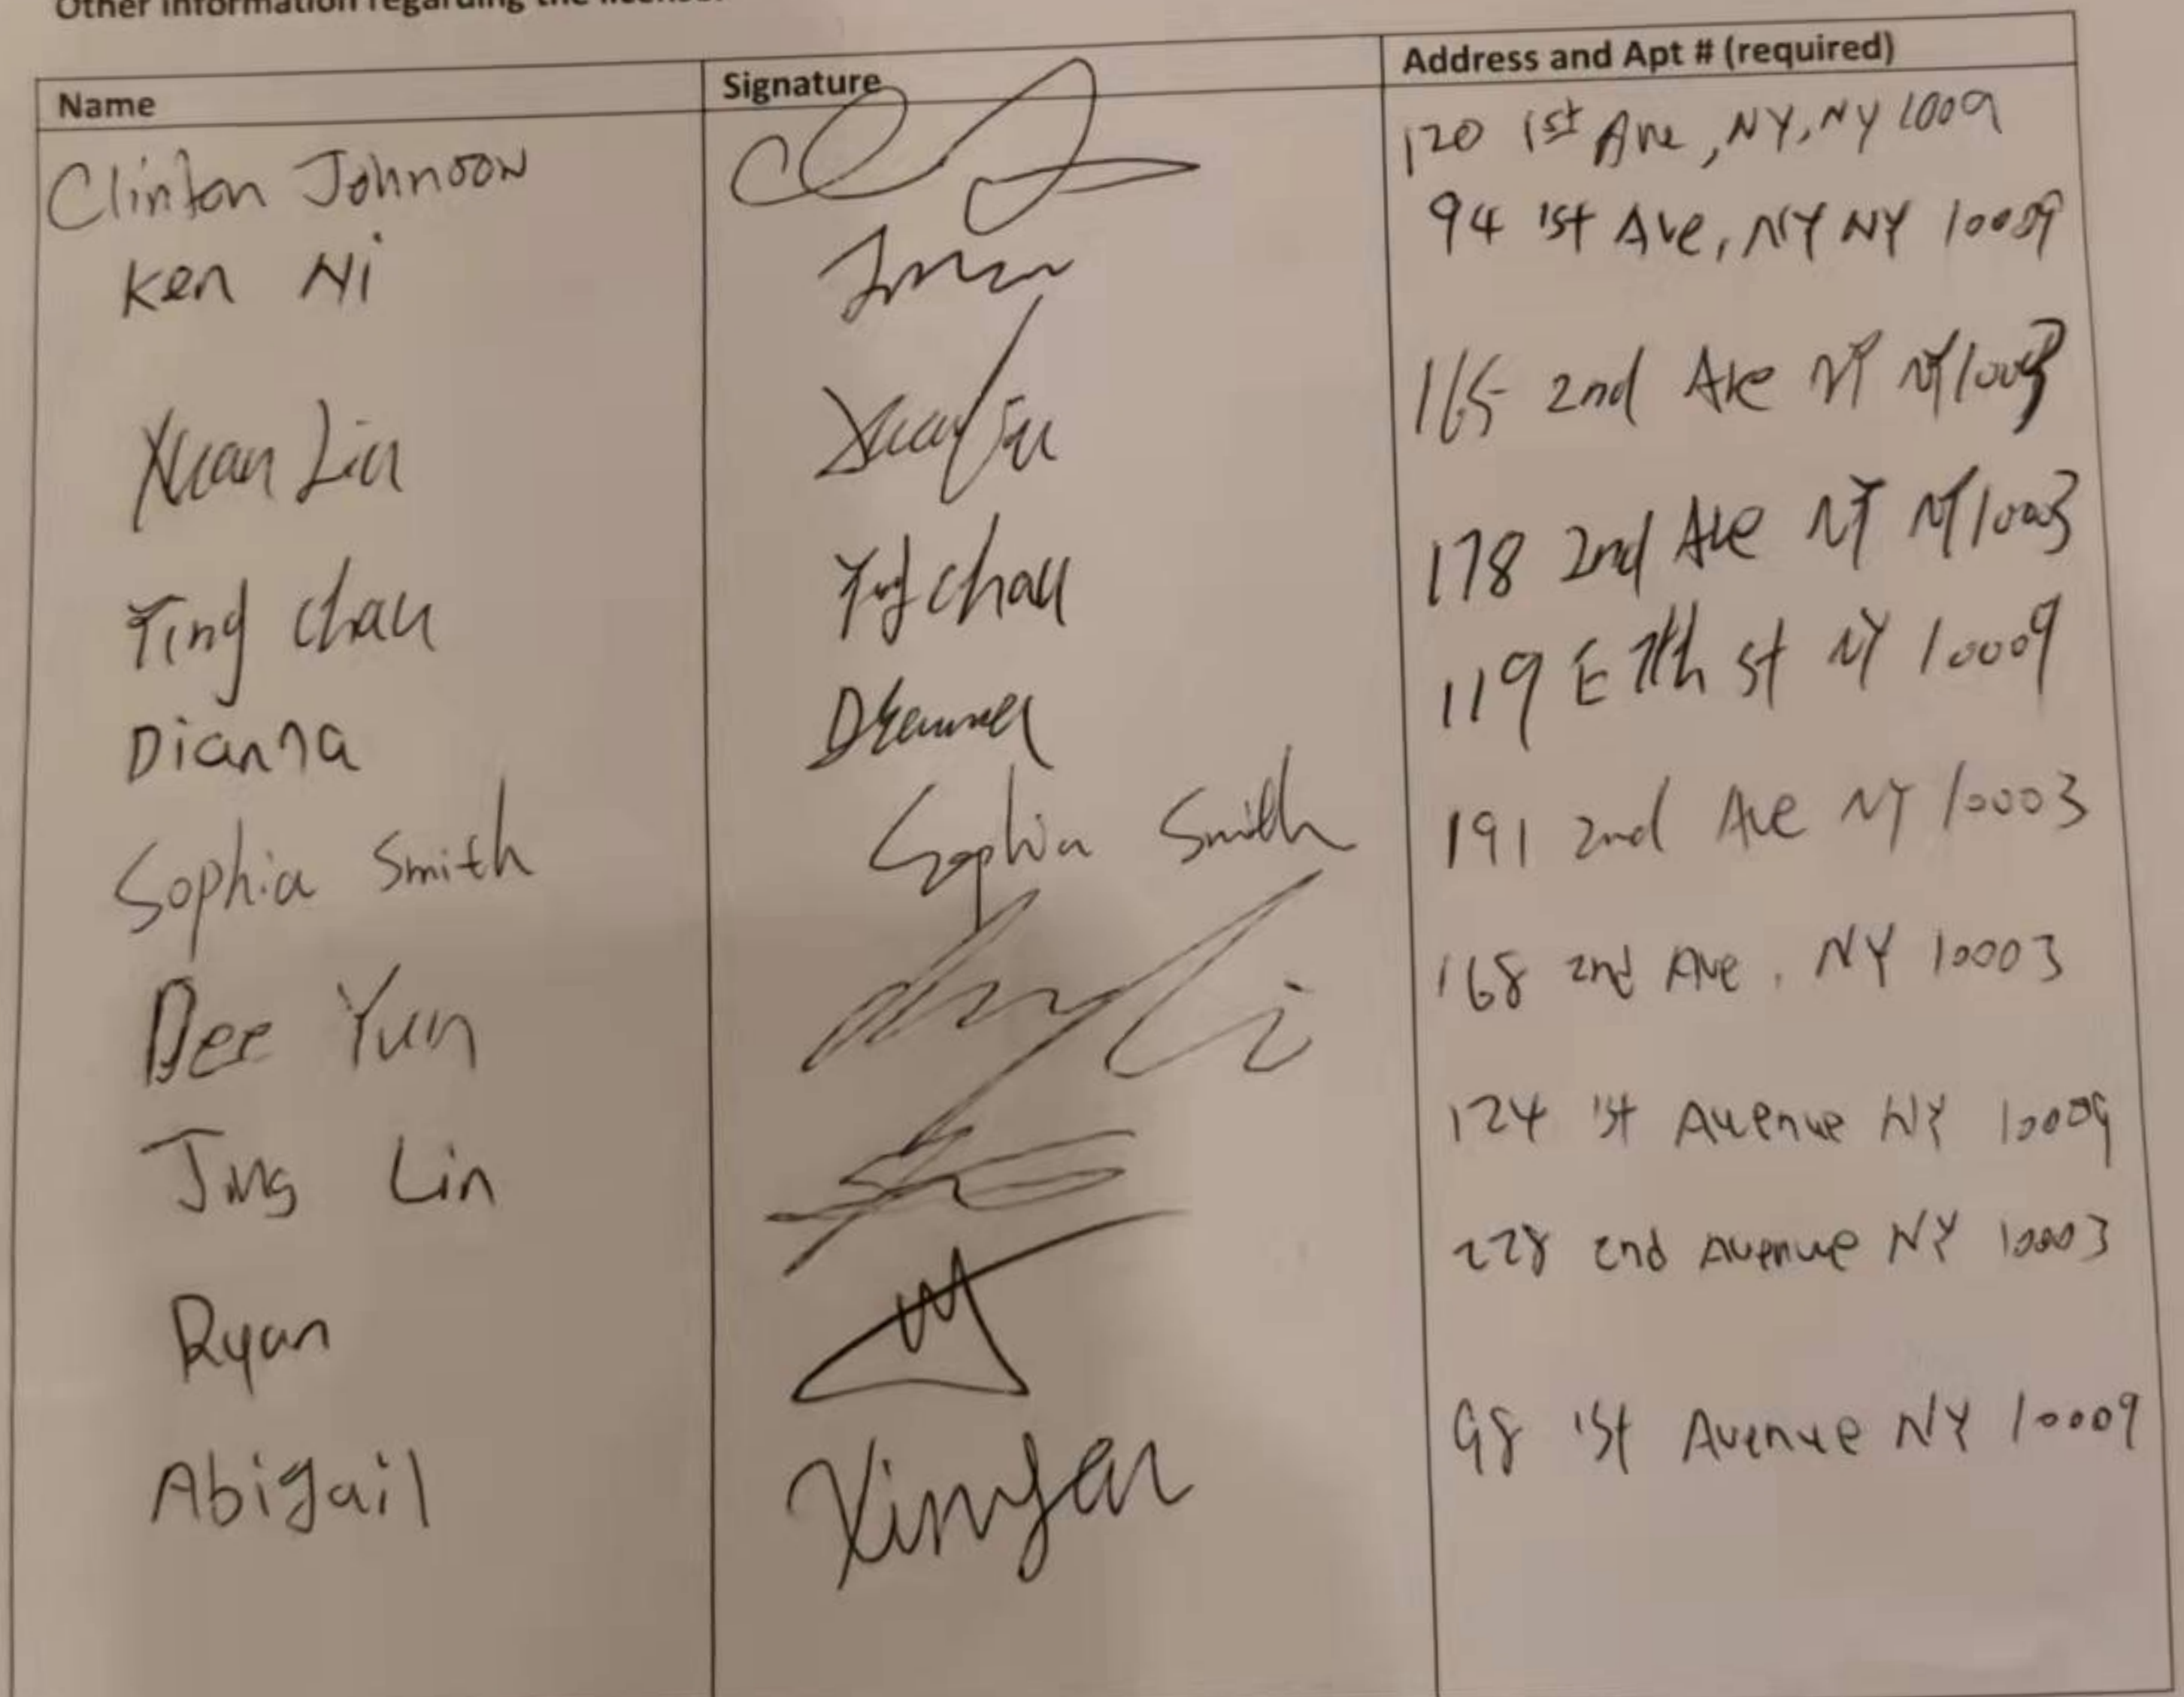 Other information regarding the license:
Name Signature Address and Apt # (required)
Clinton Johnson 120 1st Ave, NY, NY 1009
Ken Ni 94 1st Ave, NY NY 10009
Xuan Liu 165 2nd Ave NY NY 10003
Ying Chau Ying Chau 178 2nd Ave NY NY 10003
Dianna 119 E 7th St NY 10009
Sophia Smith Sophia Smith 191 2nd Ave NY 10003
Dee Yun 168 2nd Ave, NY 10003
Jing Lin 124 1st Avenue NY 10009
Ryan 228 2nd Avenue NY 10003
Abigail 98 1st Avenue NY 10009